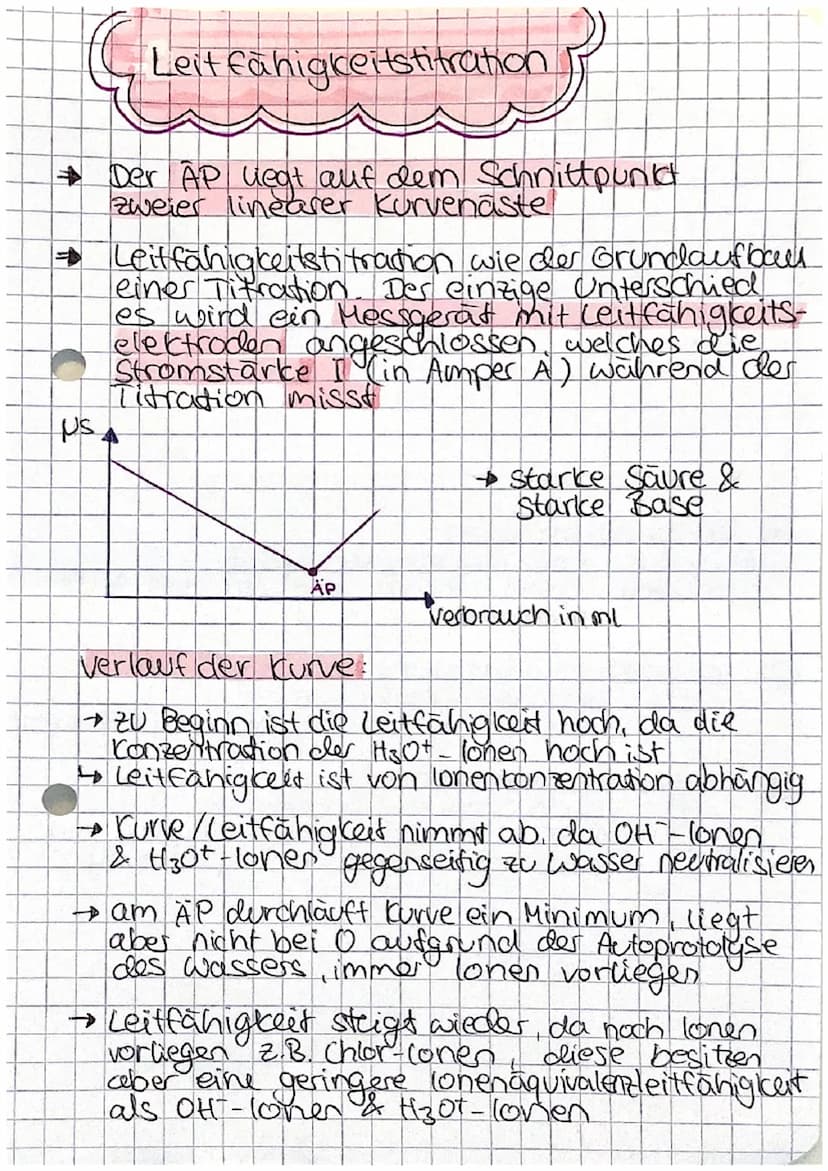 Leitfähigkeitstitration
→ Der ÄP liegt auf dem Schnittpunkt
zweier linearer Kurvenäste
→ Leitfähigkeitstitration wie der Grundaufbau
einer Titration. Der einzige Unterschied
es wird ein Messgerät mit Leitfähigkeits-
elektroden angeschlossen, welches die
Stromstärke I (in Amper A) während der
Titration misst
µS
→ starke Säure &
starke Base
ÄP
Verbrauch in ml
Verlauf der Kurve:
→ zu Beginn ist die Leitfähigkeit hoch, da die
Konzentration der H3O+ - Ionen hoch ist
↳ Leitfähigkeit ist von Ionenkonzentration abhängig
→ Kurve/Leitfähigkeit nimmt ab, da OH⁻-Ionen
& H3O+-Ionen gegenseitig zu Wasser neutralisieren
→ am ÄP durchläuft Kurve ein Minimum, liegt
aber nicht bei 0 aufgrund der Autoprotolyse
des Wassers, immer Ionen vorliegen
→ Leitfähigkeit steigt wieder, da noch Ionen
vorliegen z.B. Chlor-Ionen, diese besitzen
aber eine geringere Ionenäquivalenzleitfähigkeit
als OH⁻-Ionen & H3O+-Ionen